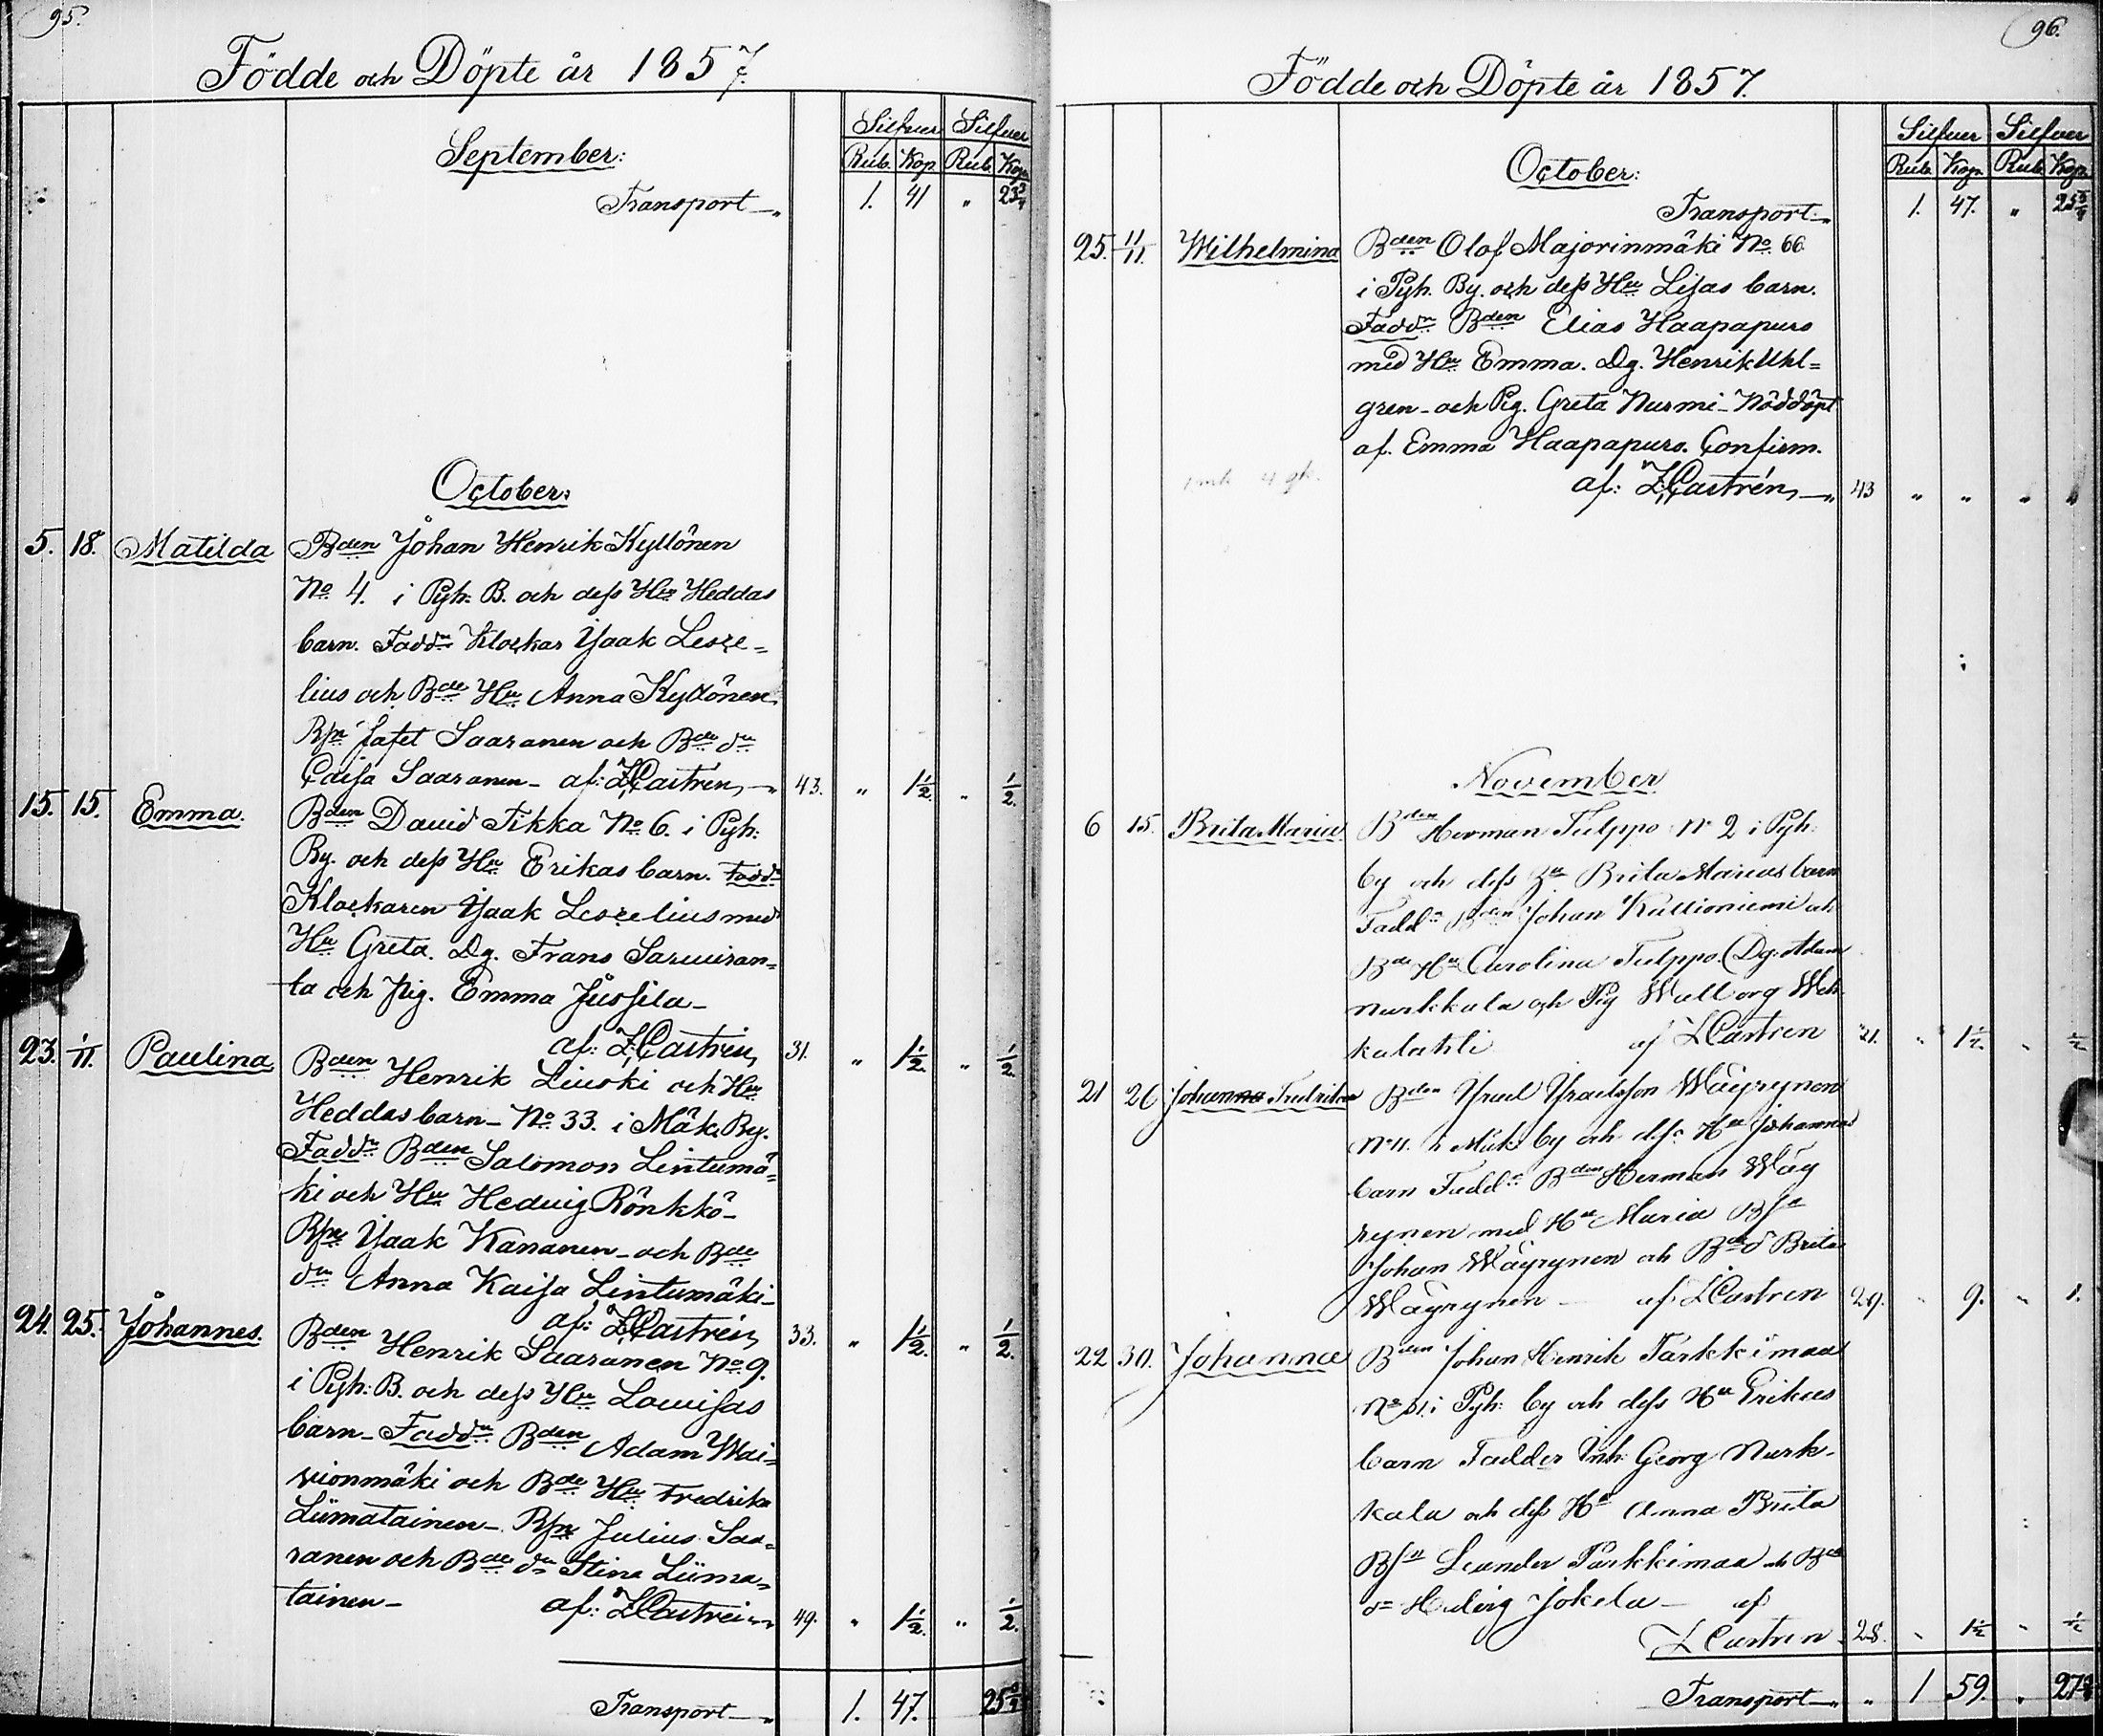 95.
Födde och Döpte år 1857.
Silfver Silfver
September:
Rub. Kop. Rub. Kop.
Transport 1. 41 " 23¾
October:
5. 18. Matilda Bden Johan Henrik Kyllönen
No 4. i Pyh. B. och dess Hu Heddas
barn. Faddr Klockar Isaak Lesce-
lius och Bde Hu Anna Kyllönen.
Bsn Jafet Saaranen och Bde dn
Caisa Saaranen - af: Z. Castrén 43. " 1½. " ½.
15. 15. Emma. Bden David Tikka No 6. i Pyh:
By. och dess Hu Erikas barn. Faddr
Klockaren Isaak Lescelius med
Hu Greta. Dg. Frans Sarviran-
ta och Pig. Emma Jussila -
af: Z. Castrén 31. " 1½. " ½.
23. 1/11. Paulina Bden Henrik Liuski och Hu
Heddas barn - No 33. i Mäk. By.
Faddr Bden Salomon Lintumä-
ki och Hu Hedvig Rönkkö -
Bsn Isaak Kananen - och Bde
dn Anna Kaisa Lintumäki -
af: Z. Castrén 33. " 1½. " ½.
24. 25. Johannes. Bden Henrik Saaranen No 9.
i Pyh: B. och dess Hu Lovisas
barn - Faddr Bden Adam Wai-
vionmäki och Bde Hu Fredrika
Liimatainen - Bsn Julius Saa-
ranen och Bde dn Stina Liima-
tainen - af: Z. Castrén 49. " 1½. " ½.
Transport 1. 47. 25¾
96.
Födde och Döpte år 1857.
Silfver Silfver
October:
Rub. Kop. Rub. Kop.
Transport 1. 47. " 25¾
25. 11/11. Wilhelmina Bden Olof Majorinmäki No 66
i Pyh. By. och dess Hu Lisas barn.
Faddr Bden Elias Haapapuro
med Hu Emma. Dg. Henrik Uhl-
gren - och Pig. Greta Nurmi - Nöddöpt
af. Emma Haapapuro. Confirm.
af: Z. Castrén 43 " " " "
November
6 15. Brita Maria Bden Herman Tulppo No 2 i Pyh.
by och dess Hu Brita Marias barn
Faddr Bden Johan Kullioniemi och
Bde Hu Carolina Tulppo. (Dg. Adam
Nurkkala och Pig Wallborg Weh-
kalahti af Z Castren 31. " 1½. " ½
21 26 Johanna Fredrika Bden Israel Israelsson Wäyrynen
No 11. i Mäk. by och dess Hu Johannas
barn Faddr Bden Herman Wäy
rynen med Hu Maria Bsn
Johan Wäyrynen och Bde d Brita
Wäyrynen - af Z Castren 29. " 9. " 1.
22 30. Johanna Bden Johan Henrik Parkkimaa
No 31. i Pyh: by och dess Hu Erikas
barn Fadder Inh: Georg Nurk-
kala och dess Hu Anna Brita
Bsn Leander Parkkimaa och Bde
dn Hedvig Jokela - af
Z Castren 28. " 1½ " ½
Transport " 1 59. " 27¾